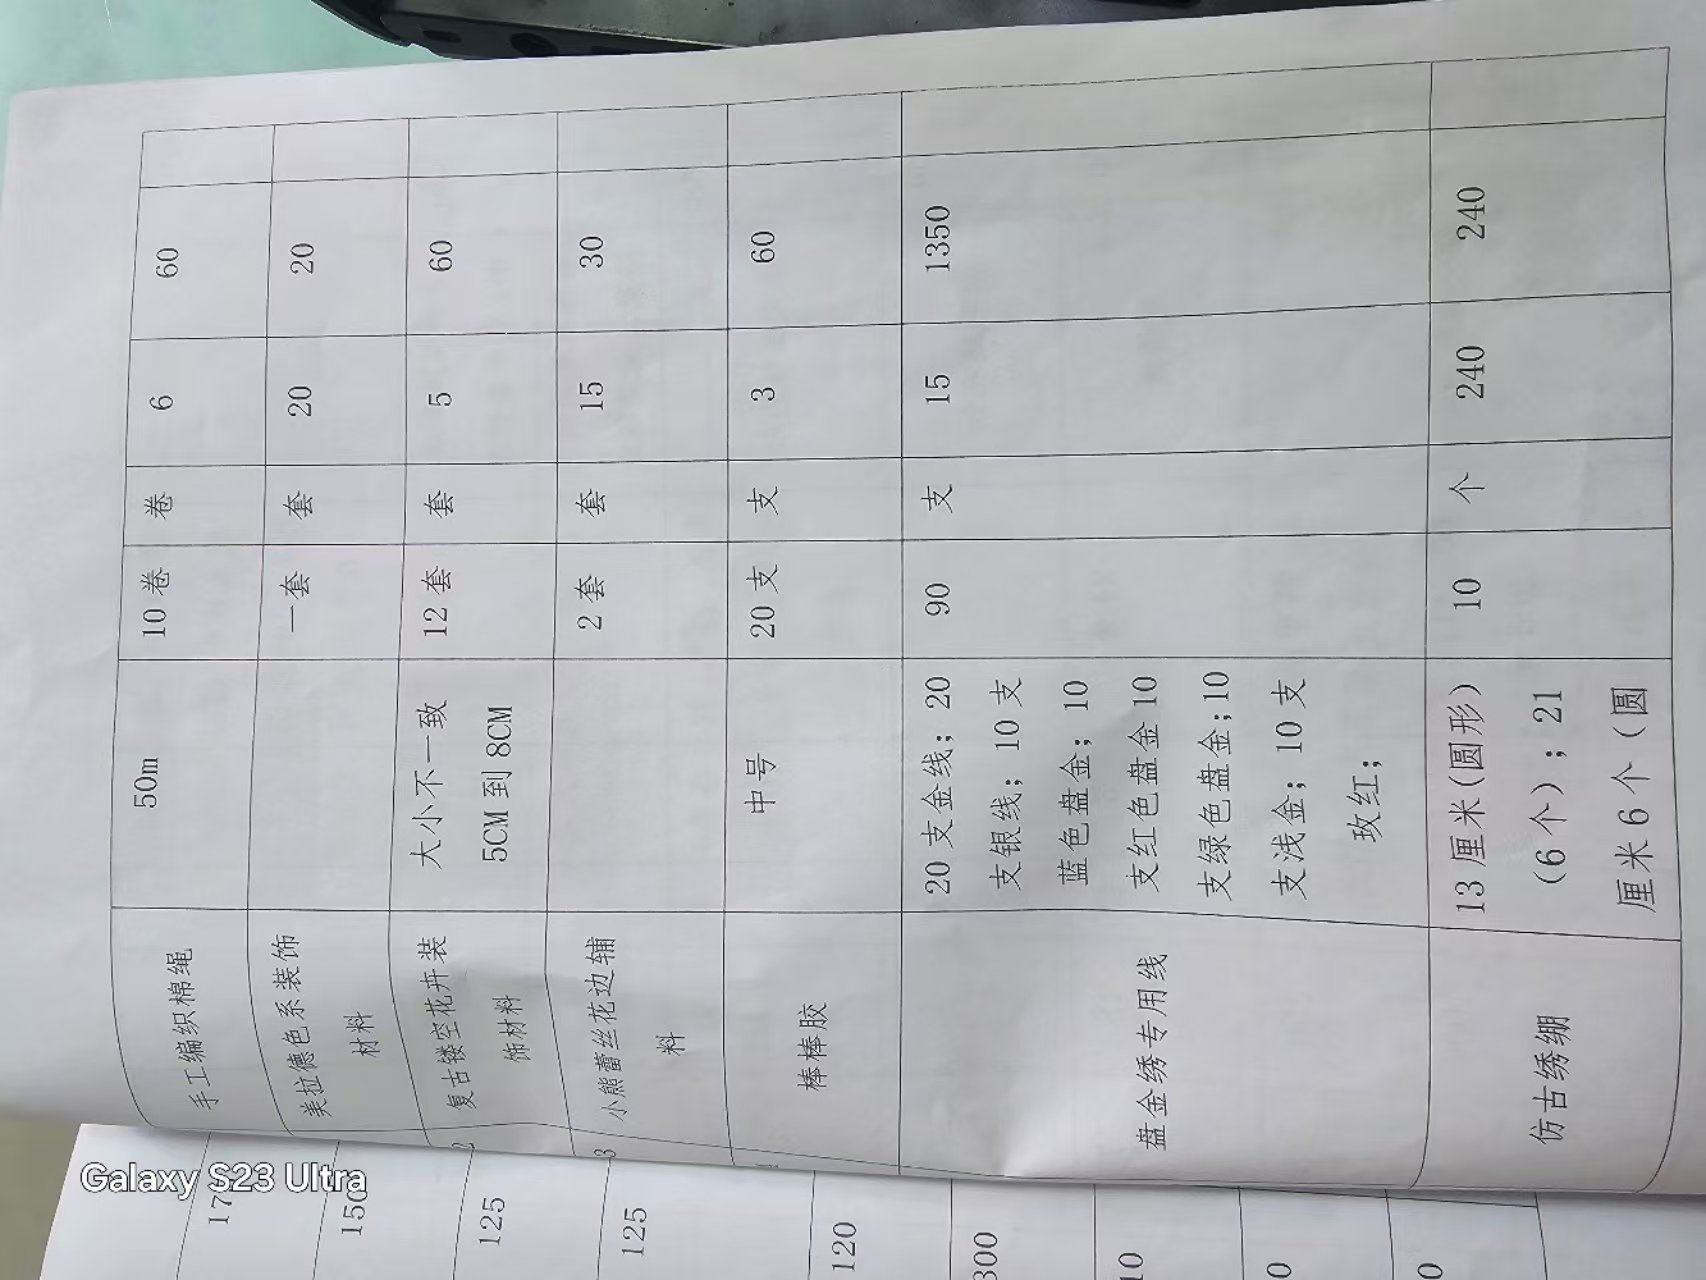 手工编织棉绳 50m 10 卷 卷 6 60
美拉德色系装饰
材料 一套 套 20 20
复古镂空花卉装
饰材料 大小不一致
5CM 到 8CM 12 套 套 5 60
小熊蕾丝花边辅
料 2 套 套 15 30
棒棒胶 中号 20 支 支 3 60
盘金绣专用线 20 支金线；20
支银线；10 支
蓝色盘金；10
支红色盘金 10
支绿色盘金;10
支浅金；10 支
玫红； 90 支 15 1350
仿古绣绷 13 厘米(圆形)
(6 个)；21
厘米 6 个（圆 10 个 240 240
125
125
120
Galaxy S23 Ultra